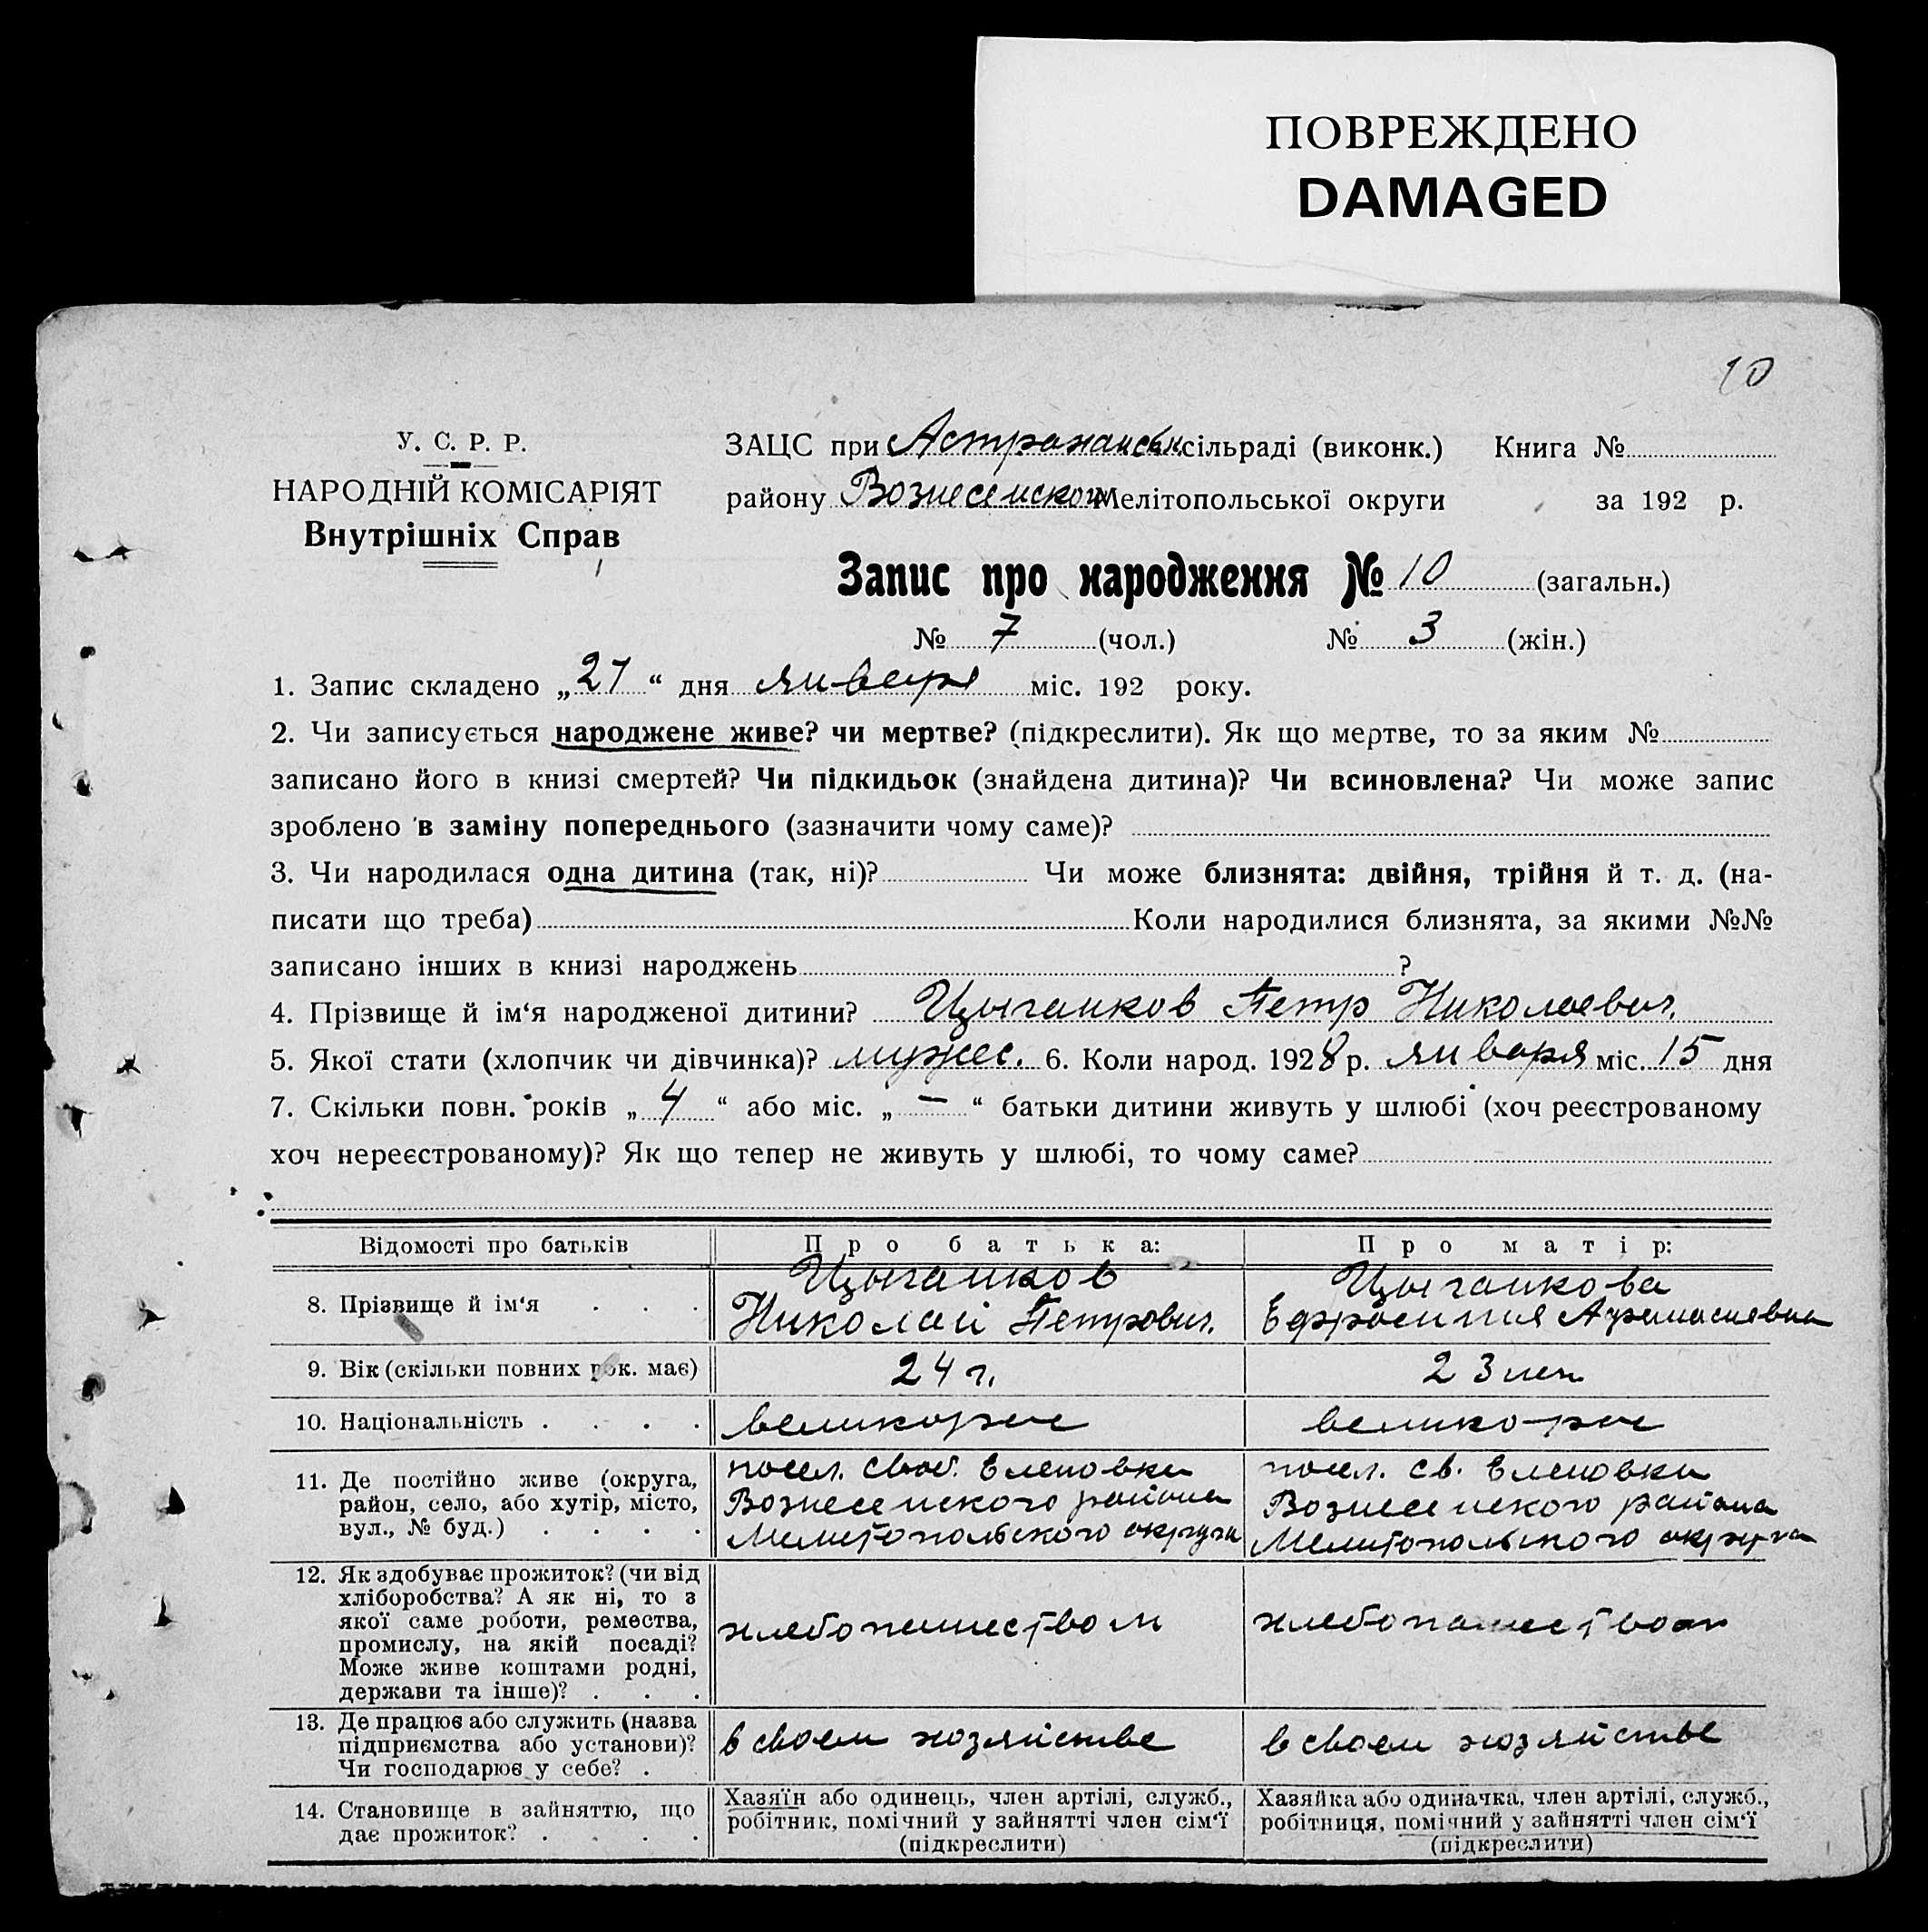 ПОВРЕЖДЕНО
DAMAGED
10
У. С. Р. Р.
НАРОДНІЙ КОМІСАРІЯТ
Внутрішніх Справ
ЗАЦС при Астраханськ. сільраді (виконк.) Книга №
району Вознесенского Мелітопольської округи за 192 р.
Запис про народження № 10 (загальн.)
№ 7 (чол.) № 3 (жін.)
1. Запис складено „21“ дня января міс. 192 року.
2. Чи записується народжене живе? чи мертве? (підкреслити). Як що мертве, то за яким №
записано його в книзі смертей? Чи підкидьок (знайдена дитина)? Чи всиновлена? Чи може запис
зроблено в заміну попереднього (зазначити чому саме)?
3. Чи народилася одна дитина (так, ні)? Чи може близнята: двійня, трійня й т. д. (на-
писати що треба) Коли народилися близнята, за якими №№
записано інших в книзі народжень ?
4. Прізвище й ім‘я народженої дитини? Цыганков Петр Николаевич.
5. Якої стати (хлопчик чи дівчинка)? мужес. 6. Коли народ. 1928 р. января міс. 15 дня
7. Скільки повн. років „ 4 “ або міс. „ — “ батьки дитини живуть у шлюбі (хоч реєстрованому
хоч нереєстрованому)? Як що тепер не живуть у шлюбі, то чому саме?
Відомості про батьків
Про батька:
Про матір:
8. Прізвище й ім‘я . . .
Цыганков
Николай Петрович.
Цыганкова
Ефросиния Афанасиевна
9. Вік (скільки повних рок. має)
24 г.
23 лет
10. Національність . . . .
великорос
велико-рос
11. Де постійно живе (округа,
район, село, або хутір, місто,
вул., № буд.) . . . .
посел. своб. Еленовки
Вознесенского района
Мелитопольского округа
посел. св. Еленовки
Вознесенского района
Мелитопольского округа
12. Як здобуває прожиток? (чи від
хліборобства? А як ні, то з
якої саме роботи, ремества,
промислу, на якій посаді?
Може живе коштами родні,
держави та інше)? . . .
хлебопашеством
хлебопашеством
13. Де працює або служить (назва
підприємства або установи)?
Чи господарює у себе? .
в своем хозяйстве
в своем хозяйстве
14. Становище в зайняттю, що
дає прожиток? . . . .
Хазяїн або одинець, член артілі, служб.,
робітник, помічний у зайнятті член сім‘ї
(підкреслити)
Хазяйка або одиначка, член артілі, служб.,
робітниця, помічний у зайнятті член сім‘ї
(підкреслити)